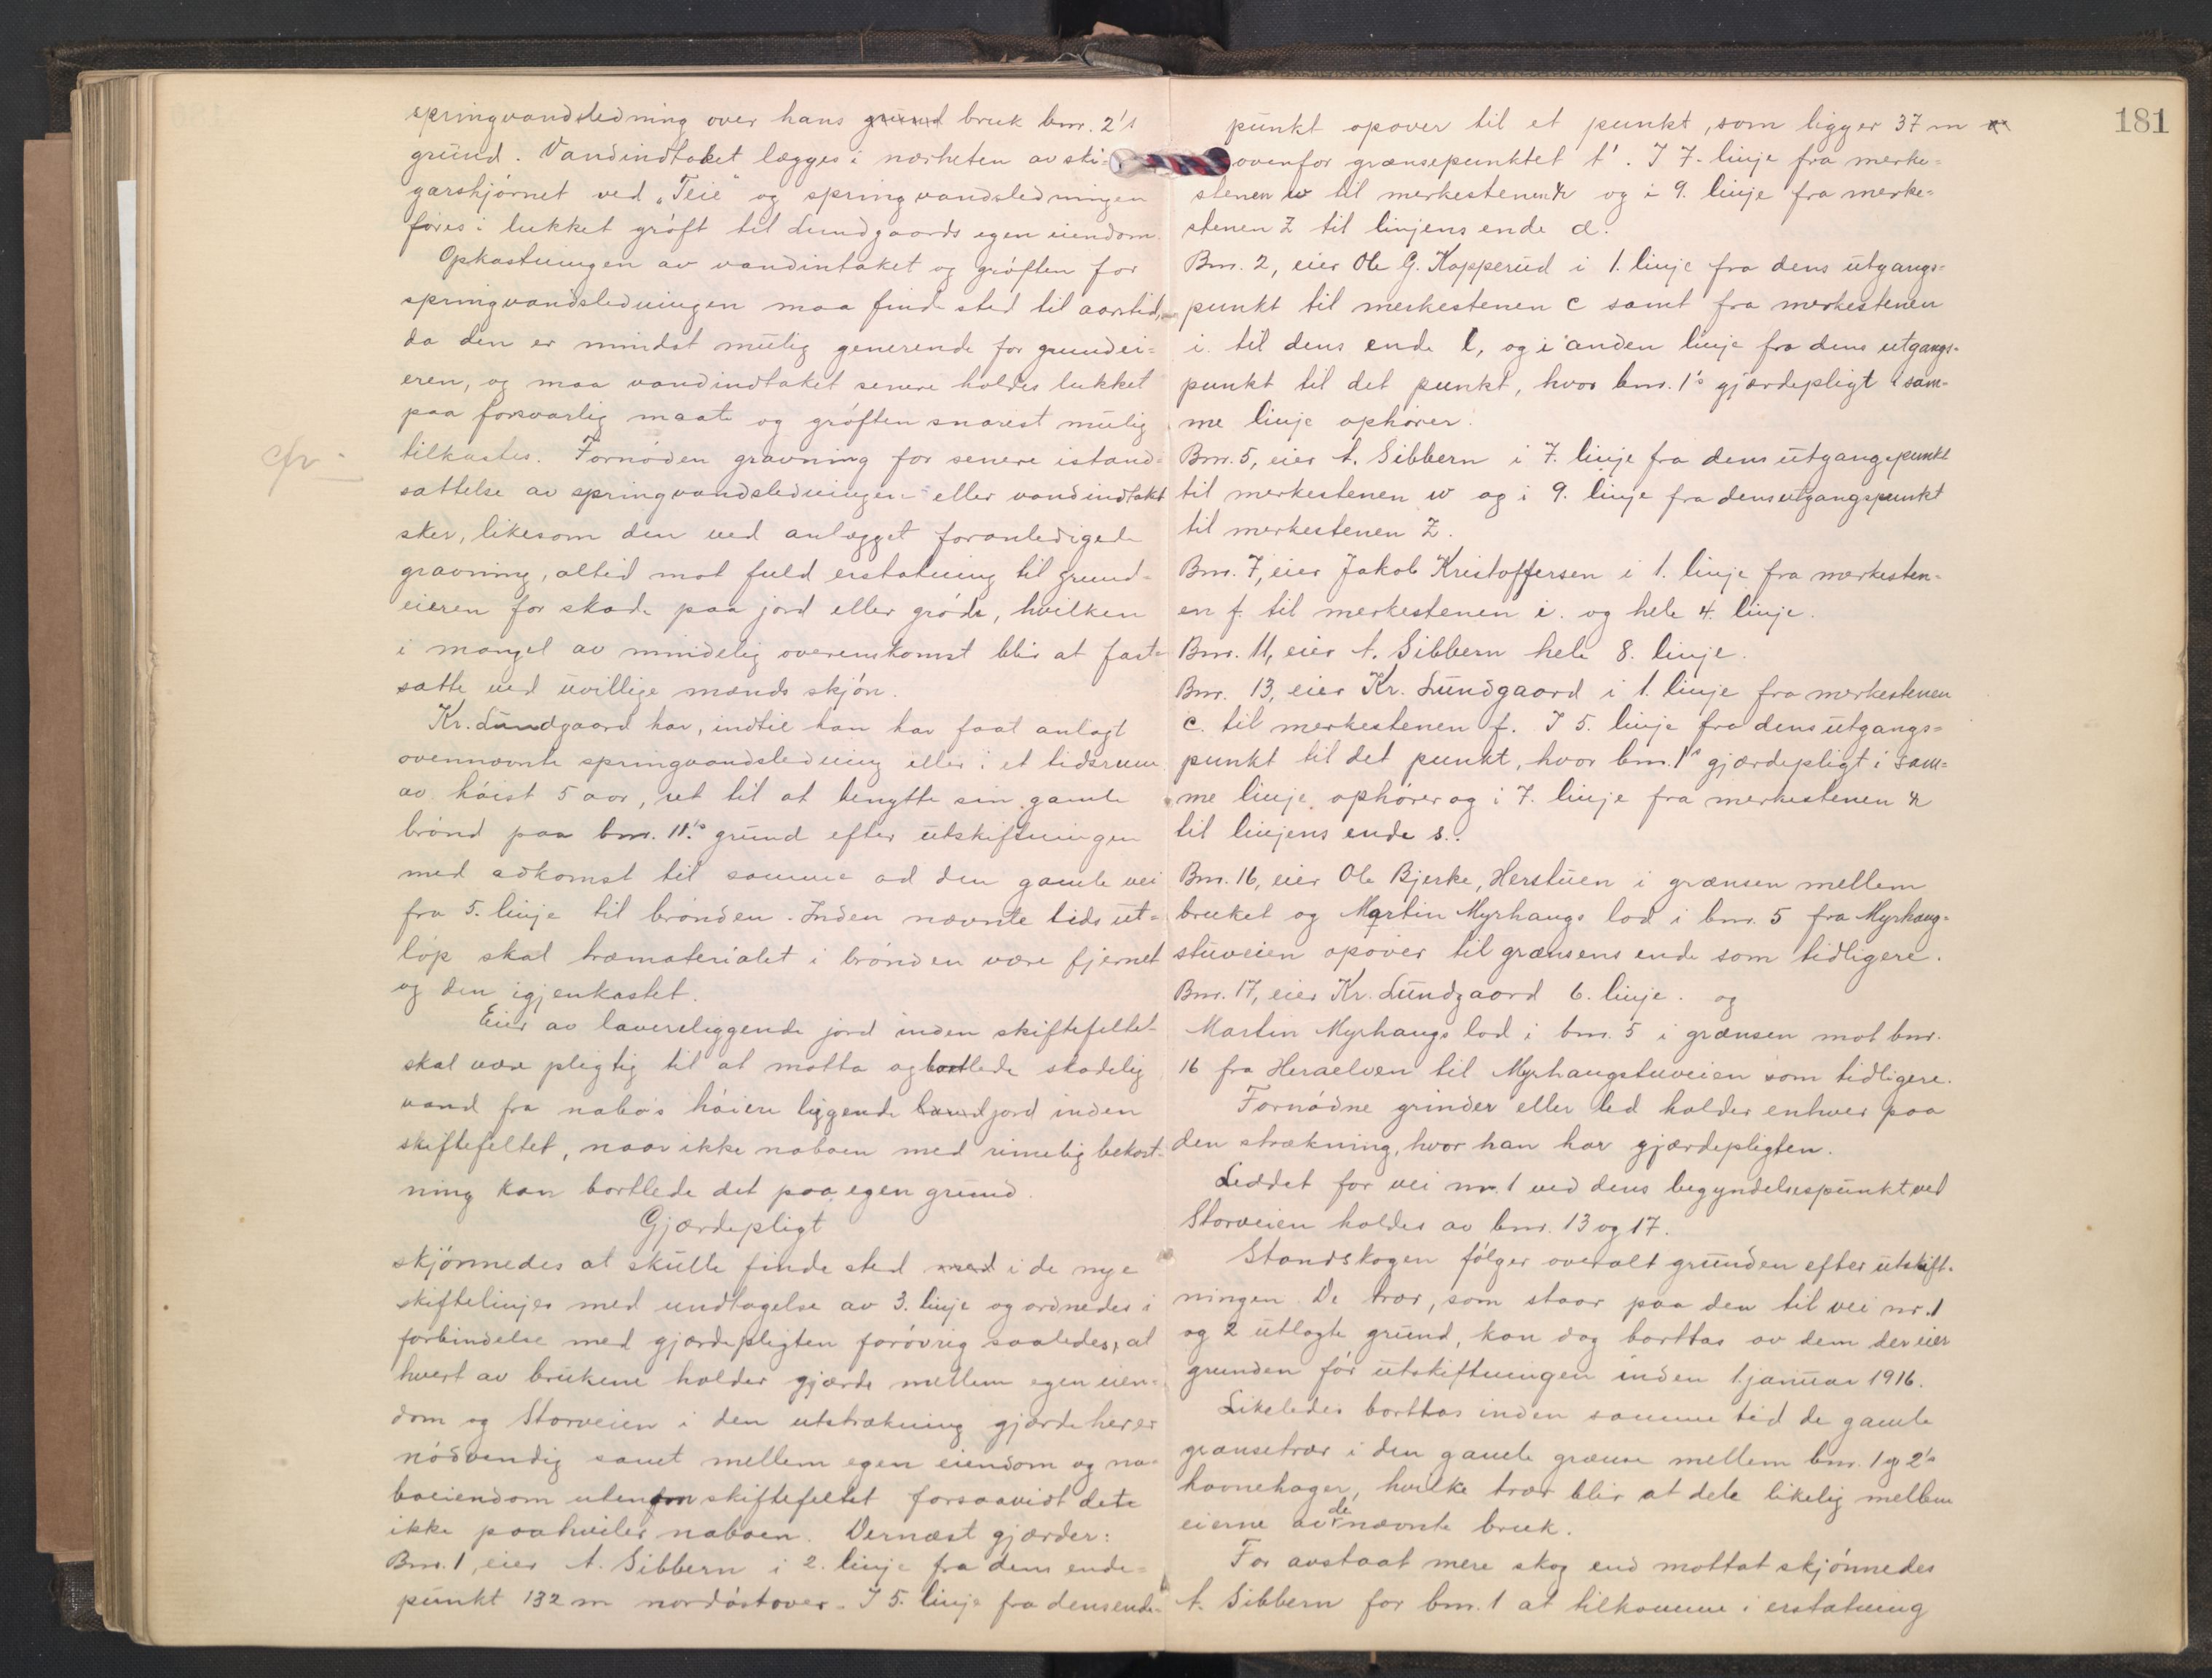 springvandsledning over hans grund bruk bnr. 2's
grund. Vandindtaket lægges i nærheten av ski-
garshjørnet ved "Teie" og springvandsledningen
føres i lukket grøft til Lundgaards egen eiendom.
Opkastningen av vandintaket og grøften for
springvandsledningen maa finde sted til aarstid,
da den er mindst mulig generende for grundei-
eren, og maa vandindtaket senere holdes lukket
paa forsvarlig maate og grøften snarest mulig
cfr.
tilkastes. Fornøden gravning for senere istand-
sættelse av springvandsledningen eller vandindtaket
sker, likesom den ved anlægget foranledigede
gravning, altid mot fuld erstatning til grund-
eieren for skade paa jord eller grøde, hvilken
i mangel av mindelig overenskomst blir at fast-
sætte ved uvillige mænds skjøn.
Kr. Lundgaard har, indtil han har faat anlagt
ovennævnte springvandsledning eller i et tidsrum
av høist 5 aar, ret til at benytte sin gamle
brønd paa bnr. 11's grund efter utskiftningen
med adkomst til samme ad den gamle vei
fra 5. linje til brønden. Inden nævnte tids ut-
løp skal træmaterialet i brønden være fjernet
og den igjenkastet.
Eier av lavereliggende jord inden skiftefeltet
skal være pligtig til at motta og bortlede skadelig
vand fra nabo's høiere liggende land jord inden
skiftefeltet, naar ikke naboen med rimelig bekost-
ning kan bortlede det paa egen grund.
Gjærdepligt
skjønnedes at skulle finde sted med i de nye
skiftelinjer med undtagelse av 3. linje og ordnedes i
forbindelse med gjærdepligten forøvrig saaledes, at
hvert av brukene holder gjærde mellem egen eien-
dom og Storveien i den utstrækning gjærde her er
nødvendig samt mellem egen eiendom og na-
boeiendom utenfor skiftefeltet forsaavidt dette
ikke paahviler naboen. Dernæst gjærder:
Bnr. 1, eier A. Sibbern i 2. linje fra dens ende-
punkt 132 m nordøstover. I 5. linje fra dens ende-
181
punkt opover til et punkt, som ligger 37 m
ovenfor grænsepunktet t'. I 7. linje fra merke-
stenen w til merkestenen x og i 9. linje fra merke-
stenen z til linjens ende d.
Bnr. 2, eier Ole G. Kopperud i 1. linje fra dens utgangs-
punkt til merkestenen c samt fra merkestenen
i. til dens ende l, og i anden linje fra dens utgangs-
punkt til det punkt, hvor bnr. 1's gjærdepligt i sam-
me linje ophører.
Bnr. 5, eier A. Sibbern i 7. linje fra dens utgangspunkt
til merkestenen w og i 9. linje fra dens utgangspunkt
til merkestenen z.
Bnr. 7, eier Jakob Kristoffersen i 1. linje fra merkesten-
en f. til merkestenen i. og hele 4. linje.
Bnr. 11, eier A. Sibbern hele 8. linje.
Bnr. 13, eier Kr. Lundgaard i 1. linje fra merkestenen
c. til merkestenen f. I 5. linje fra dens utgangs-
punkt til det punkt, hvor bnr. 1's gjærdepligt i sam-
me linje ophører og i 7. linje fra merkestenen x
til linjens ende s.
Bnr. 16, eier Ole Bjerke, Herstuen i grænsen mellem
bruket og Martin Myrhaugs lod i bnr. 5 fra Myrhaug-
stuveien opover til grænsens ende som tidligere.
Bnr. 17, eier Kr. Lundgaard 6. linje. og
Martin Myrhaugs lod i bnr. 5 i grænsen mot bnr.
16 fra Heraelven til Myrhaugstuveien som tidligere.
Fornødne grinder eller led holder enhver paa
den strækning, hvor han har gjærdepligten.
Leddet for vei nr. 1 ved dens begyndelsespunkt ved
Storveien holdes av bnr. 13 og 17.
Standskogen følger overalt grunden efter utskift-
ningen. De trær, som staar paa den til vei nr. 1
og 2 utlagte grund, kan dog borttas av dem der eier
grunden før utskiftningen inden 1. januar 1916.
Likeledes borttas inden samme tid de gamle
grænsetrær i den gamle grænse mellem bnr. 1 og 2's
havnehager, hvilke trær blir at dele likelig mellem
eierne av de nævnte bruk.
For avstaat mere skog end mottat skjønnedes
A. Sibbern for bnr. 1 at tilkomme i erstatning